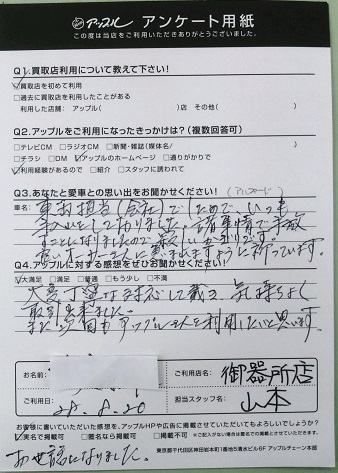 アップル アンケート用紙
この度は当店をご利用いただきありがとうございました。
Q1.買取店利用について教えて下さい!
☑買取店を初めて利用
□過去に買取店を利用したことがある
利用した店舗: アップル( )店 その他( )
Q2.アップルをご利用になったきっかけは?(複数回答可)
□テレビCM □ラジオCM □新聞・雑誌(媒体名/ )
□チラシ □DM ☑アップルのホームページ □通りがかりで
☑利用経験があるので □紹介 □スタッフに誘われて
Q3.あなたと愛車との思い出をお聞かせください!
車名:
車お担当(会社)で いつも
手入れをしておりました。諸事情で手放
すことになりましたので 寂しいばかりです。
良いオーナーさんに恵まれますように祈っています。
Q4.アップルに対する感想をぜひお聞かせください!
☑大満足 □満足 □普通 □もう少し □不満
大変丁寧な対応して戴き、気持ちよく
取引出来ました。
また次回もアップルさんを利用したいと思います。
お名前
ご利用店名: 御器所店
ご利用日: 28.8.20
担当スタッフ名: 山本
お客様に書いていただいた感想を、アップルHPや広告に掲載させていただいてもよろしいでしょうか?
☑実名で掲載可 □匿名なら掲載可 □掲載不可 ※ご記入がない場合は匿名での掲載とさせていただきます。
お世話になりました。
東京都千代田区神田岩本町1番地5清水ビル6F アップルチェーン本部